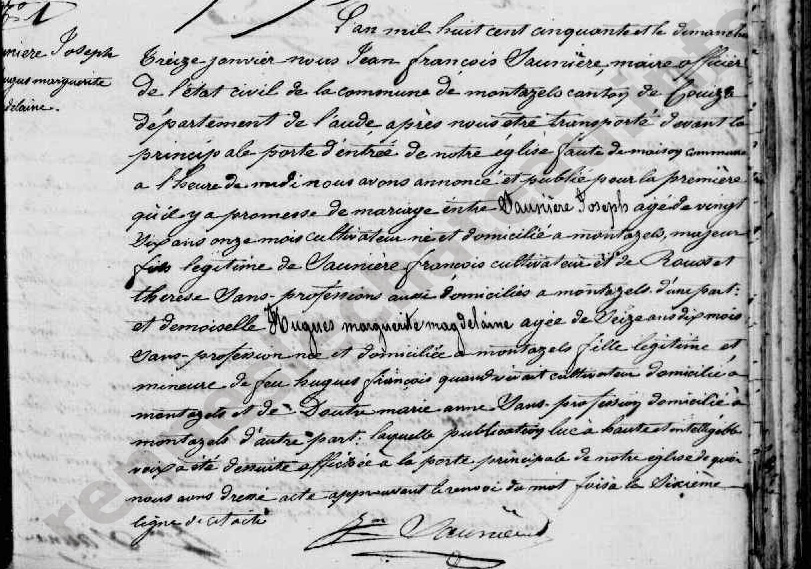 L'an mil huit cent cinquante et le dimanche
nière Joseph
treize janvier nous Jean François Saunière, maire officier
ugues marguerite
de l'état civil de la commune de montazels canton de Couiza
delaine.
département de l'aude, après nous etre transporté devant la
principale porte d'entrée de notre église faute de maison commune
a l'heure de midi nous avons annoncé et publié pour la première
qu'il y a promesse de mariage entre Saunière Joseph agé de vingt
six ans onze mois cultivateur né et domicilié a montazels, majeur
fils légitime de Saunière françois cultivateur et de Rousset
therese Sans-professions aussi domiciliés a montazels d'une part:
et demoiselle Hugues marguerite magdelaine agée de Seize ans dix mois
Sans-profession née et domiciliée a montazels fille légitime et
mineure de feu hugues françois quand vivait cultivateur domicilié à
montazels et de Doutre marie anne Sans-profession domicilié à
montazels d'autre part: laquelle publication lue à haute et intelligible
voix a été dessuite affichée a la porte principale de notre église de quoi
nous avons dressé acte approuvant le renvoi du mot fois a la Sixième
ligne de cet acte
Saunière